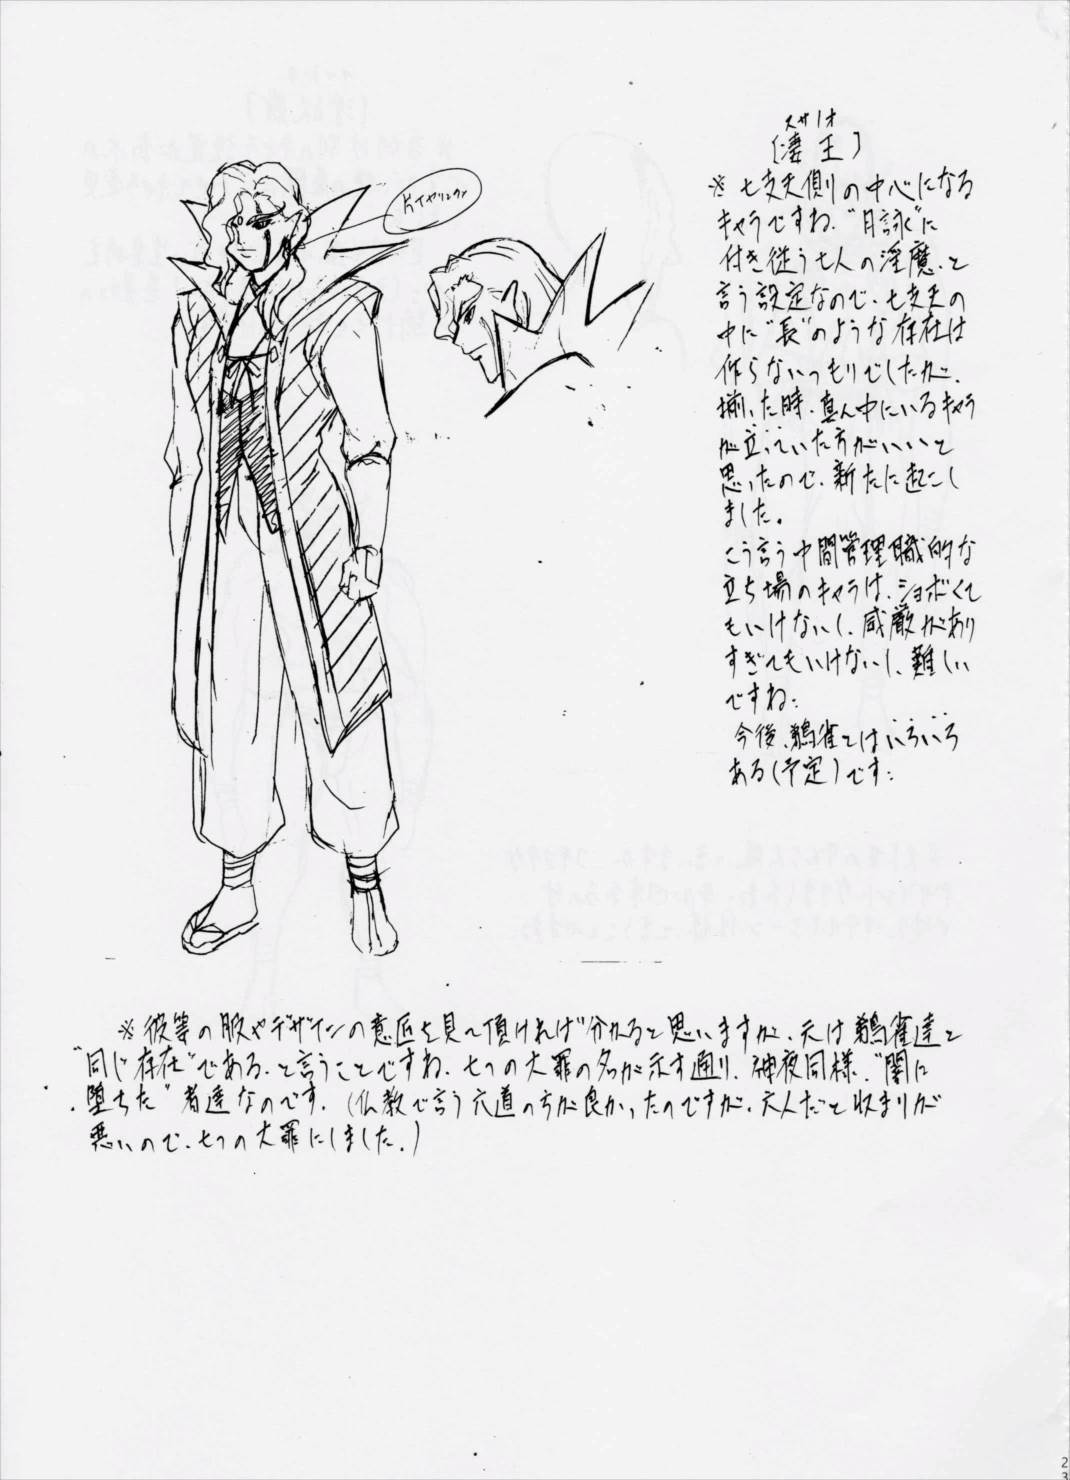 スサノオ
[凄王]
※七支天側の中心になる
キャラですね。"月詠"に
付き従う七人の淫魔、と
言う設定なので、七支天の
中に"長"のような存在は
作らないつもりでしたが、
揃った時、真ん中にいるキャラ
が立っていた方がいいと
思ったので、新たに起こし
ました。
こう言う中間管理職的な
立ち場のキャラは、ショボくて
もいけないし、威厳があり
すぎてもいけないし、難しい
ですね。
今後、鵺雀とはいろいろ
ある(予定)です。
片イヤリング
※彼等の服やデザインの意匠を見て頂ければ分かると思いますが、元は鵺雀達と
"同じ存在"である、と言うことですね。七つの大罪の名が示す通り、神夜同様、"闇に
堕ちた"者達なのです。(仏教で言う六道の方が良かったのですが、六人だと収まりが
悪いので、七つの大罪にしました。)
23